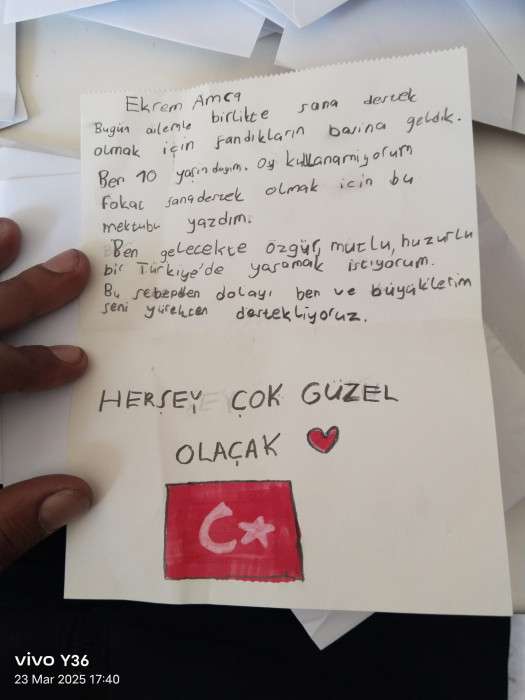 Ekrem Amca
Bugün ailemle birlikte sana destek
olmak için sandıkların başına geldik.
Ben 10 yaşındayım. Oy kullanamıyorum
fakat sana destek olmak için bu
mektubu yazdım.
Ben gelecekte özgür, mutlu, huzurlu
bir Türkiye'de yaşamak istiyorum.
Bu sebepden dolayı ben ve büyüklerim
seni yürekten destekliyoruz.
HERŞEY ÇOK GÜZEL
OLAÇAK
vivo Y36
23 Mar 2025 17:40